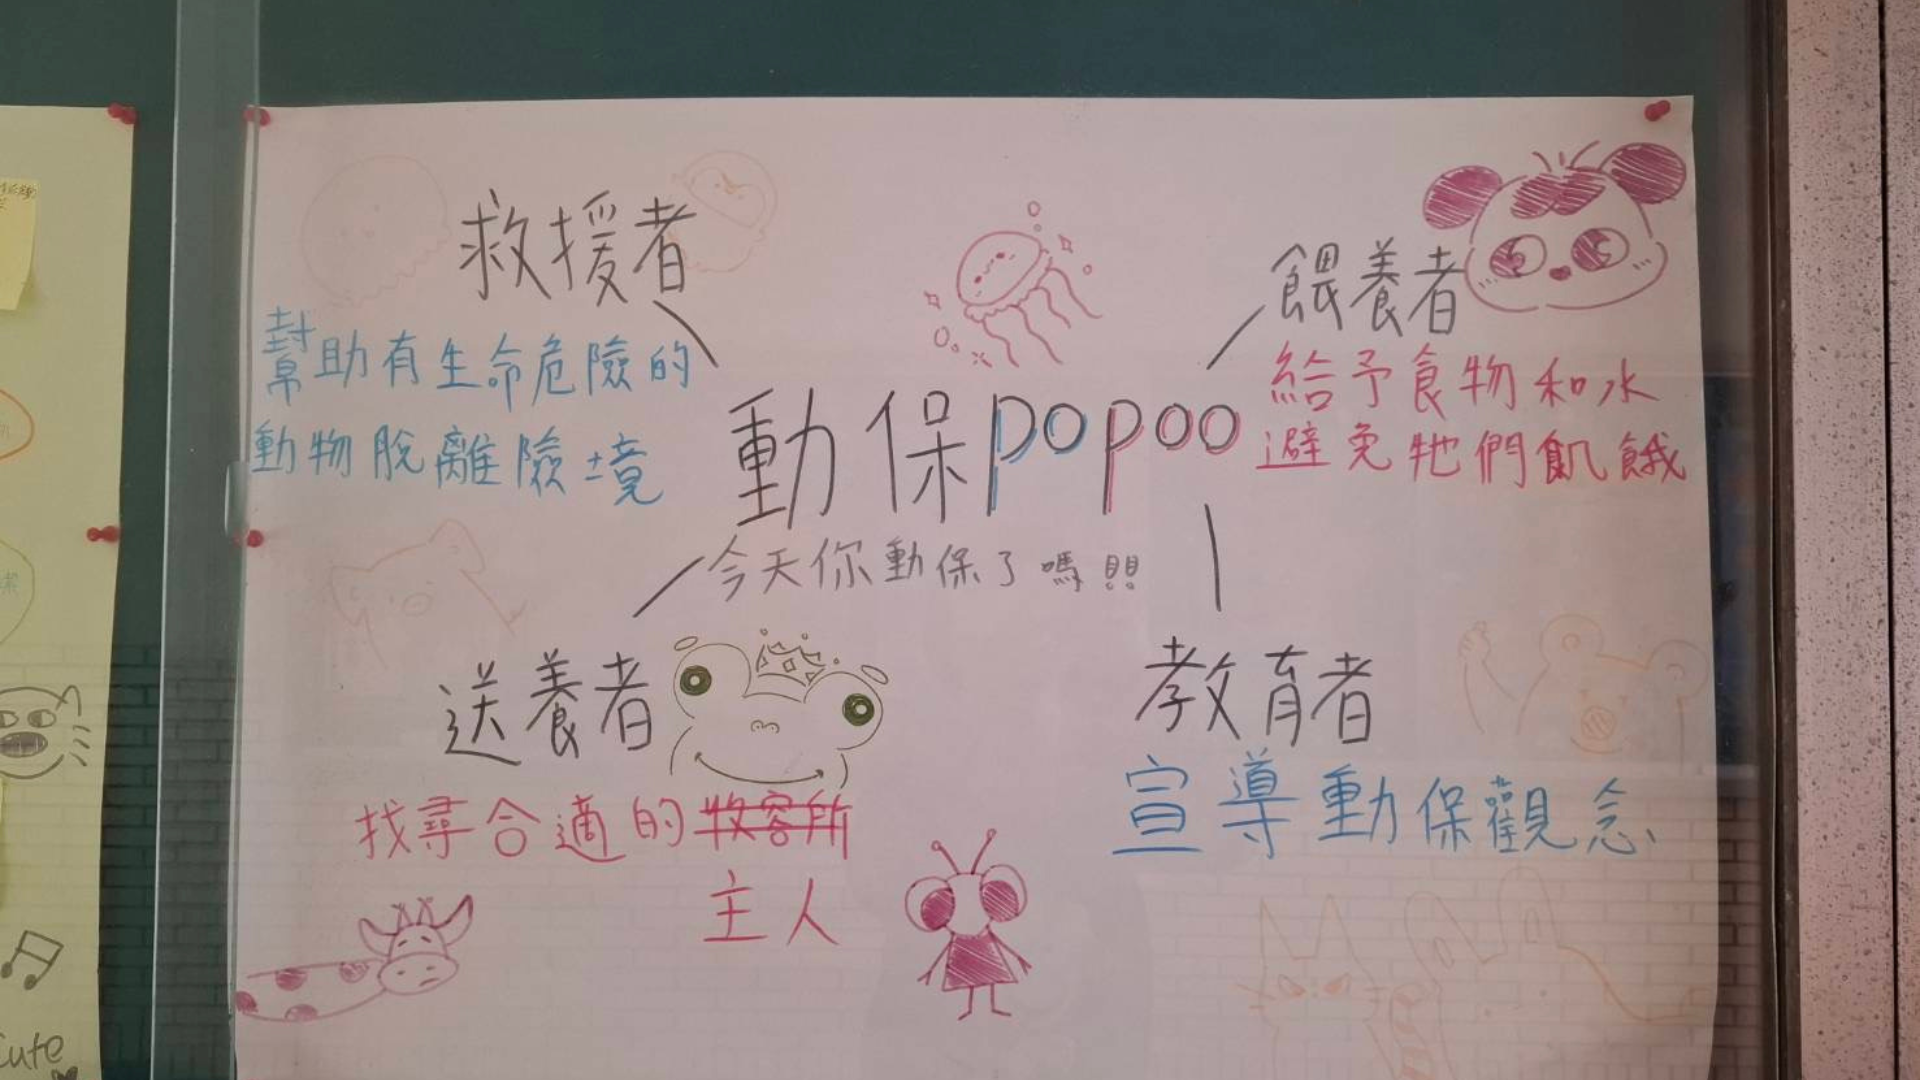 救援者
幫助有生命危險的
動物脫離險境
餵養者
給予食物和水
避免牠們飢餓
動保popoo
今天你動保了嗎!!!!
送養者
找尋合適的收容所
主人
教育者
宣導動保觀念
cute